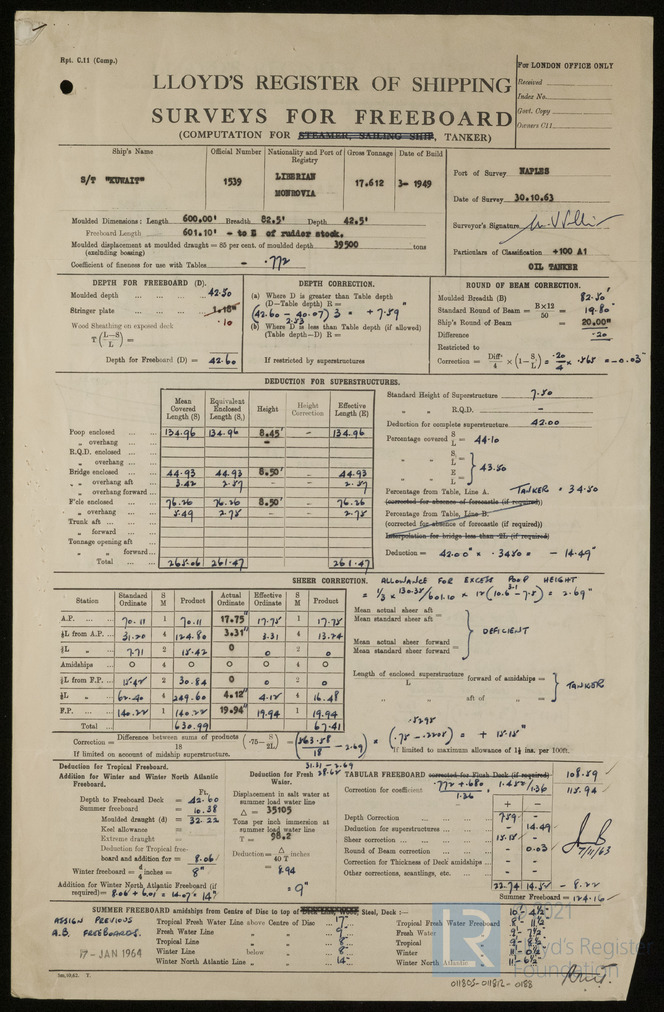 Rpt. C.11 (Comp.)
LLOYD'S REGISTER OF SHIPPING
SURVEYS FOR FREEBOARD
(COMPUTATION FOR STEAMER, SAILING SHIP, TANKER)
For LONDON OFFICE ONLY
Received
Index No.
Govt. Copy
Owners C11
Ship's Name
Official Number
Nationality and Port of Registry
Gross Tonnage
Date of Build
S/T "KUWAIT"
1539
LIBERIAN
MONROVIA
17.612
3- 1949
Port of Survey NAPLES
Date of Survey 30.10.63
Surveyor's Signature
Particulars of Classification +100 A1
OIL TANKER
Moulded Dimensions: Length 600.00' Breadth 82.5' Depth 42.5'
Freeboard Length 601.10' - to E of rudder stock.
Moulded displacement at moulded draught = 85 per cent. of moulded depth 39500 tons
(excluding bossing)
Coefficient of fineness for use with Tables - .772
DEPTH FOR FREEBOARD (D).
Moulded depth 42.50
Stringer plate 1.18"
.10
Wood Sheathing on exposed deck
T(L-S/L) =
Depth for Freeboard (D) = 42.60
DEPTH CORRECTION.
(a) Where D is greater than Table depth
(D-Table depth) R =
(42.60 - 40.07) 3 = + 7.59
2.53
(b) Where D is less than Table depth (if allowed)
(Table depth-D) R =
If restricted by superstructures
ROUND OF BEAM CORRECTION.
Moulded Breadth (B) 82.50'
Standard Round of Beam = B×12/50 = 19.80
Ship's Round of Beam = 20.00"
Difference .20
Restricted to
Correction = Diff/4 × (1-S/L) = .20/4 × .565 = -0.03"
DEDUCTION FOR SUPERSTRUCTURES.
Mean Covered Length (S)
Equivalent Enclosed Length (S₁)
Height
Height Correction
Effective Length (E)
Poop enclosed 134.96 134.96 8.45' - 134.96
„ overhang -
R.Q.D. enclosed
„ overhang
Bridge enclosed 44.93 44.93 8.50' - 44.93
„ overhang aft 3.42 2.57 - 2.57
„ overhang forward
F'cle enclosed 76.26 76.26 8.50' - 76.26
„ overhang 5.49 2.75 - 2.75
Trunk aft
„ forward
Tonnage opening aft
„ „ forward
Total 265.06 261.47 261.47
Standard Height of Superstructure 7.50
„ „ R.Q.D. -
Deduction for complete superstructure 42.00
Percentage covered S/L = 44.10
S₁/L =
E/L = 43.50
Percentage from Table, Line A. TANKER = 34.50
(corrected for absence of forecastle (if required))
Percentage from Table, Line B.
(corrected for absence of forecastle (if required))
Interpolation for bridge less than ·2L (if required)
Deduction = 42.00" × .3450 = - 14.49"
SHEER CORRECTION.
ALLOWANCE FOR EXCESS POOP HEIGHT
Station
Standard Ordinate
S M
Product
Actual Ordinate
Effective Ordinate
S M
Product
A.P. 70.11 1 70.11 17.75" 17.75 1 17.75
⅙L from A.P. 31.20 4 124.80 3.31" 3.31 4 13.24
⅓L „ 7.71 2 15.42 0 0 2 0
Amidships 0 4 0 0 0 4 0
⅓L from F.P. 15.42 2 30.84 0 0 2 0
⅙L „ 62.40 4 249.60 4.12" 4.12 4 16.48
F.P. 140.22 1 140.22 19.94" 19.94 1 19.94
Total 630.99 67.41
Mean actual sheer aft =
Mean standard sheer aft
DEFICIENT
Mean actual sheer forward =
Mean standard sheer forward
Length of enclosed superstructure forward of amidships =
L
„ aft of „ =
TANKER
Correction = Difference between sums of products/18 (.75- S/2L) = (563.58/18 - 2.69) × (.75 - .2205) = + 15.15"
.5295
If limited on account of midship superstructure.
If limited to maximum allowance of 1½ ins. per 100ft.
31.31 - 2.69
28.62
Deduction for Tropical Freeboard.
Addition for Winter and Winter North Atlantic Freeboard.
Ft.
Depth to Freeboard Deck = 42.60
Summer freeboard = 10.38
Moulded draught (d) = 32.22
Keel allowance =
Extreme draught =
Deduction for Tropical freeboard and addition for = 8.06
Winter freeboard = d/4 inches = 8"
Addition for Winter North Atlantic Freeboard (if required) = 8.06 + 6.01 = 14.07 = 14"
Deduction for Fresh Water.
Displacement in salt water at summer load water line
Δ = 35105
Tons per inch immersion at summer load water line
T = 98.2
Deduction = Δ/40 T inches
= 8.94
= 9"
TABULAR FREEBOARD corrected for Flush Deck (if required) 108.59
Correction for coefficient .772 + .680/1.36 1.452/1.36 115.94
+ -
Depth Correction 7.59 -
Deduction for superstructures - 14.49
Sheer correction 15.15 -
Round of Beam correction - 0.03
Correction for Thickness of Deck amidships - -
Other corrections, scantlings, etc. - -
22.74 14.52 + 8.22
Summer Freeboard = 124.16
7/11/63
SUMMER FREEBOARD amidships from Centre of Disc to top of Deck Line, Wood, Steel, Deck :—
ASSIGN PREVIOUS
A.B. FREEBOARDS.
17 - JAN 1964
Tropical Fresh Water Line above Centre of Disc 17"
Fresh Water Line „ „ 9"
Tropical Line „ „ 8"
Winter Line below „ 8"
Winter North Atlantic Line „ „ 14"
Tropical Fresh Water Freeboard
Fresh Water „
Tropical „
Winter „
Winter North Atlantic „
5m,10,62. T.
LR
2021
Lloyd's Register
Foundation
011805-011812-0188